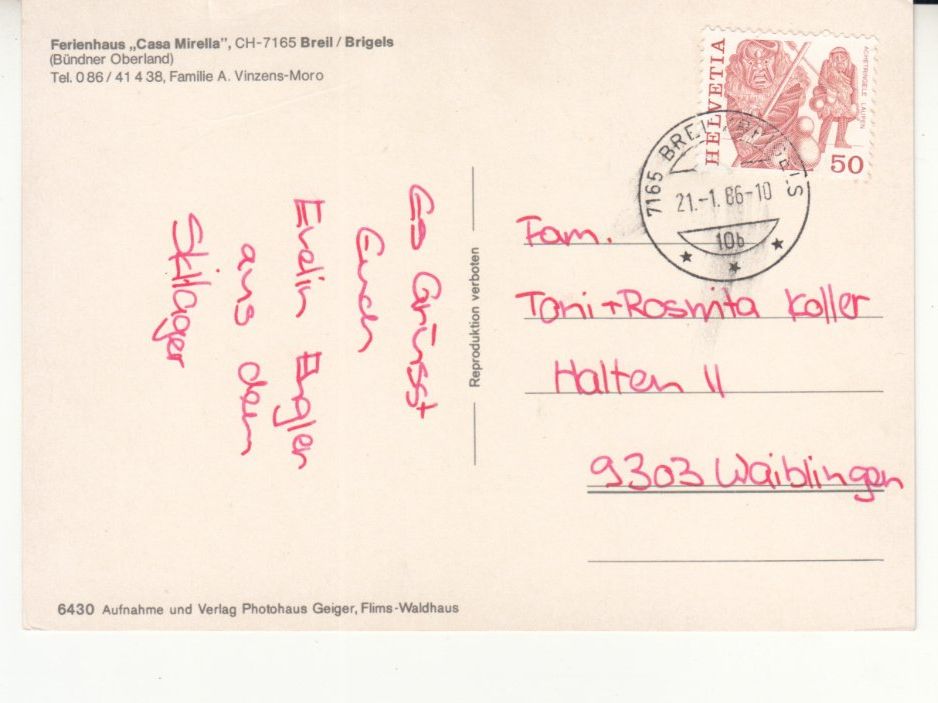 Ferienhaus „Casa Mirella", CH-7165 Breil / Brigels
(Bündner Oberland)
Tel. 0 86 / 41 4 38, Familie A. Vinzens-Moro
HELVETIA
ACHETRINGELE LAUPEN
50
7165 BREIL/BRIGELS
21.-1. 86-10
10b
Es Grüsst
Euch
Evelin Engler
aus dem
Skilager
Reproduktion verboten
Fam.
Toni + Rosmita Koller
Halten 11
9303 Waiblingen
6430 Aufnahme und Verlag Photohaus Geiger, Flims-Waldhaus